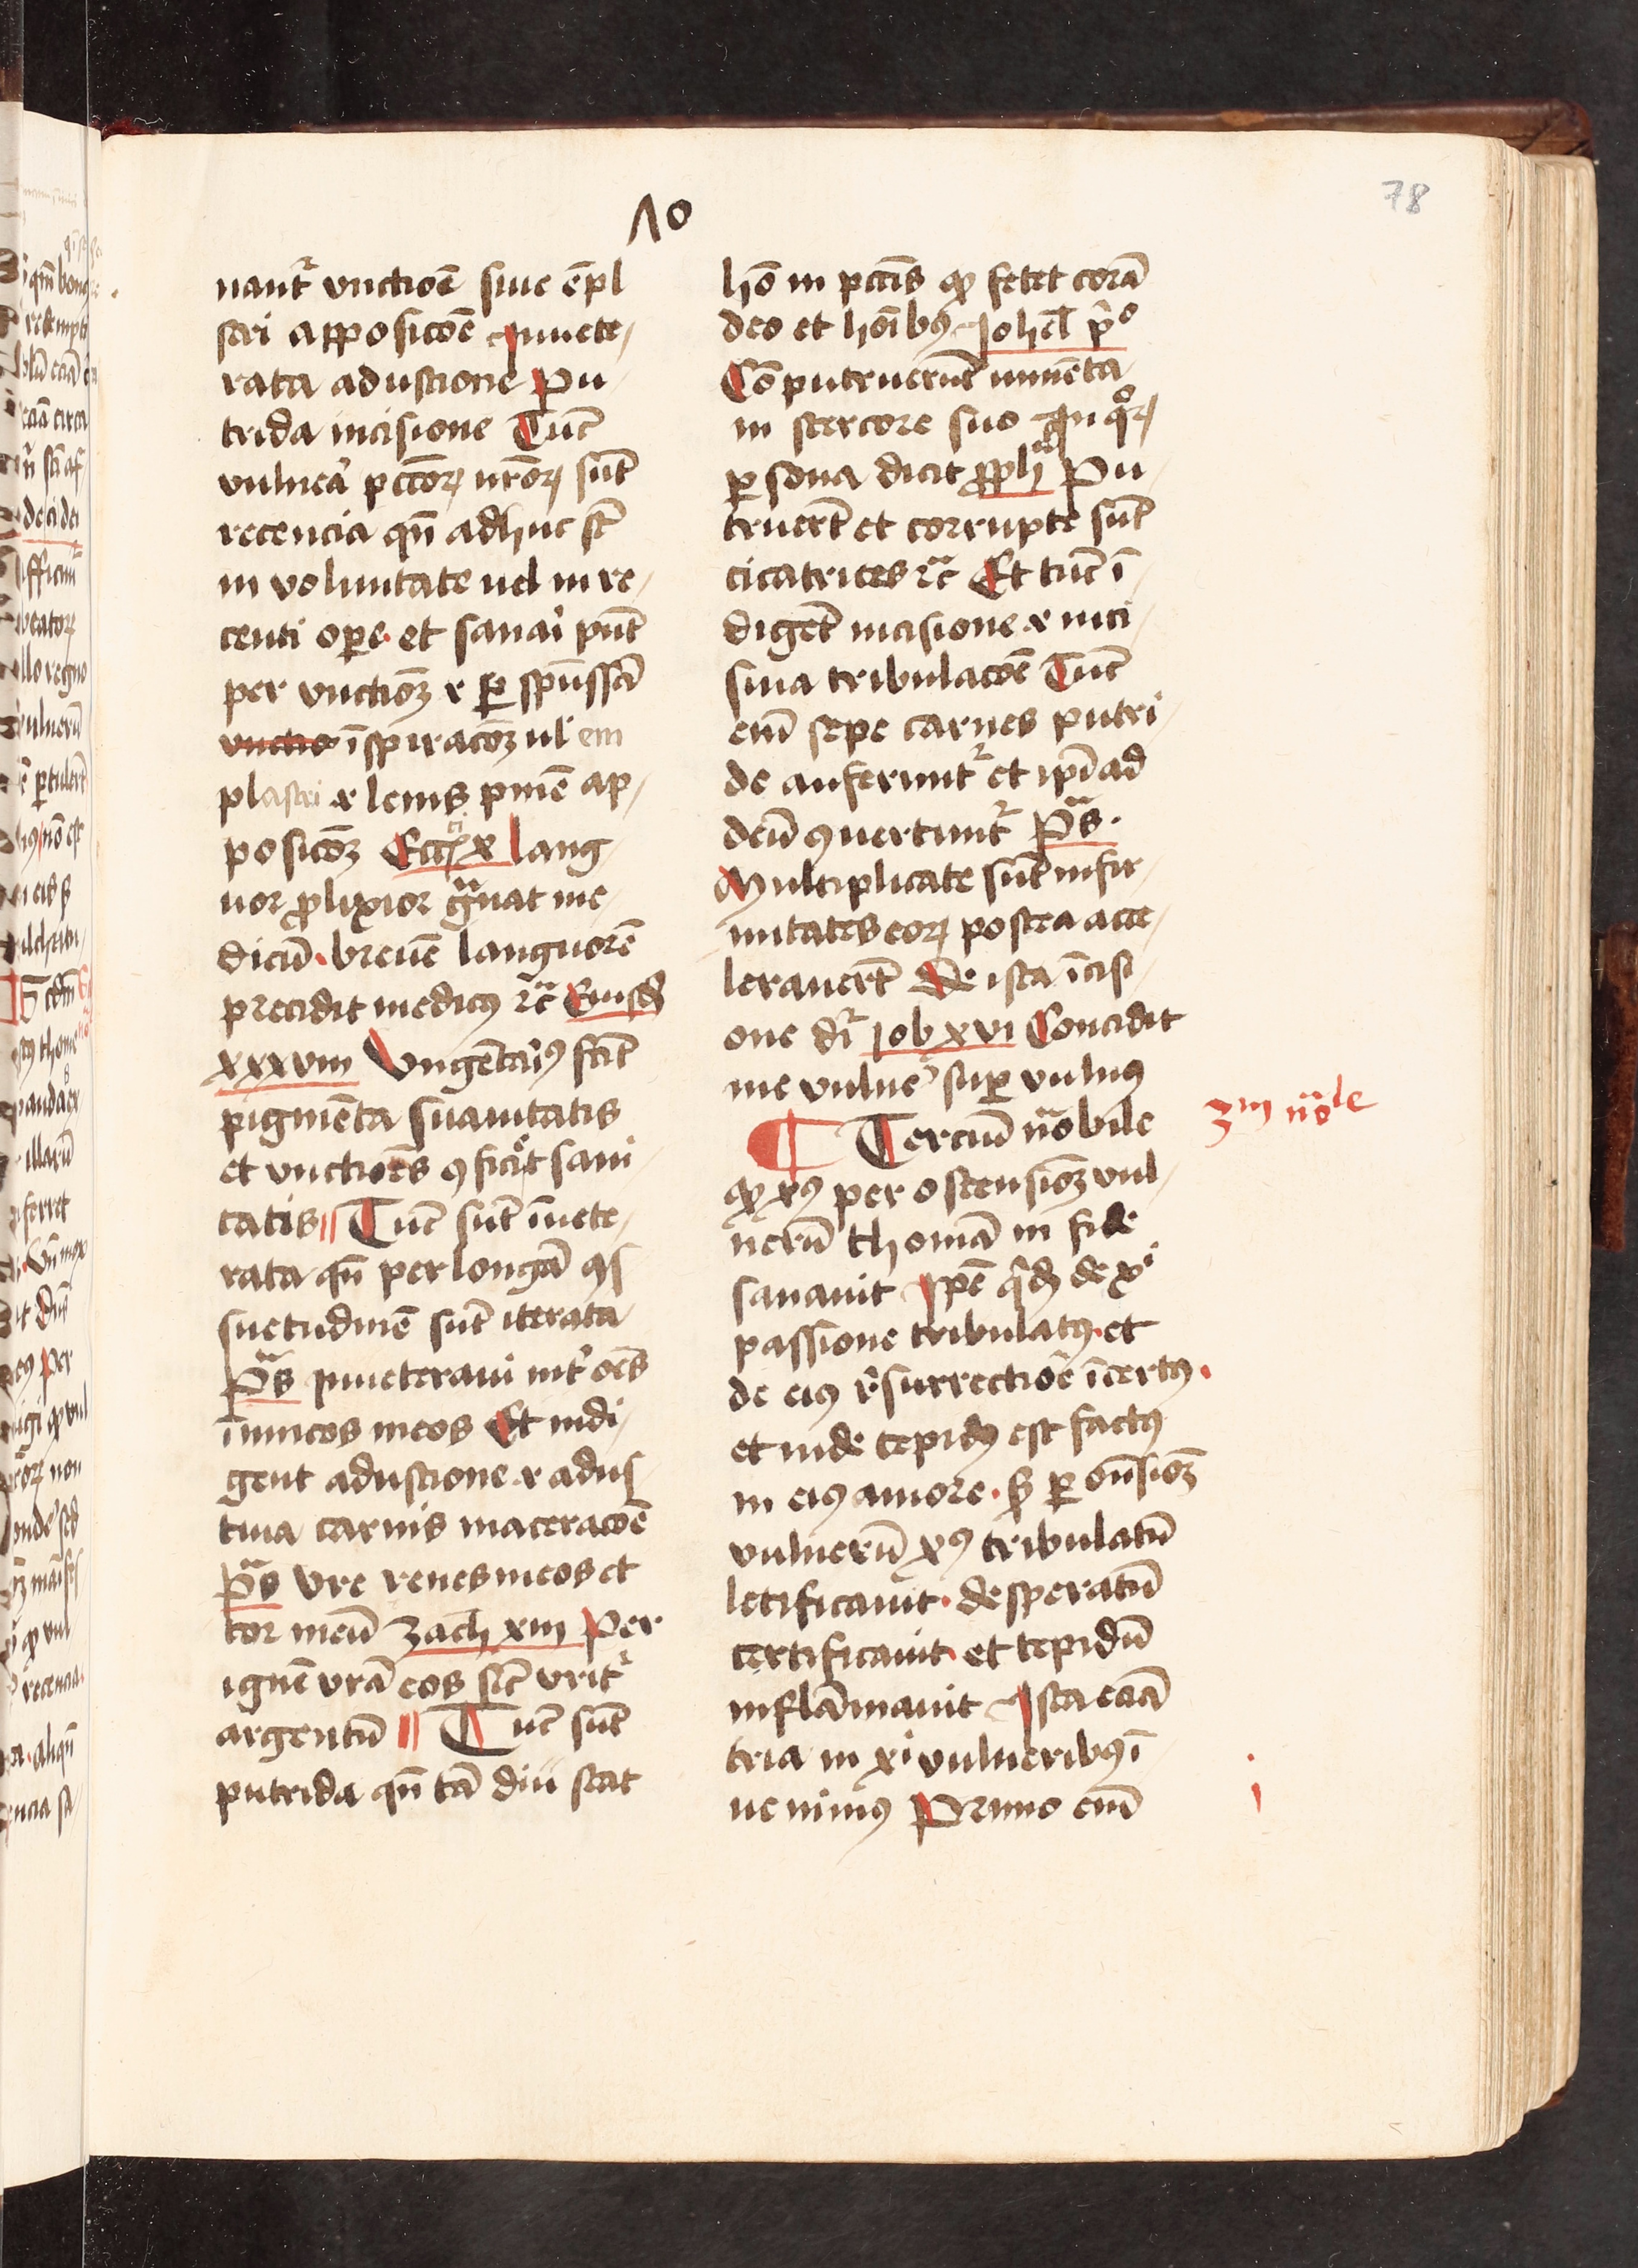 78
10
nant᷑ vnctiōe siue ēpl
stri apposicōe Jnuete/
rata adustione Pu/
trida incisione Tūc
vulnea᷑ pctōꝝ nr̄oꝝ sūt
recencia qn̄ adhuc st̄
in voluntate uel in re/
centi oꝑe · et sanai᷑ pn̄t
per vnctioꝫ ⁊ ꝑ spūssā
vnctio īspiracōꝫ ul em
plastri ⁊ lenis pnīe ap/
posicōꝫ Eccͥ x lang/
uor ꝓlixior gͣuat me/
dicū · breuē languorē
precidit medicꝰ ⁊c̄ Eiusdē
xxxviii Vngētariꝰ faciet
pigmēta suauitatis
et vnctiōes ꝯficiet sani/
tatis Tūc sūt īuete/
rata qn̄ per longā ꝯs/
suetudinē sūt iterata
pͣs Jnueteraui int᷑ oēs
inimicos meos Et indi/
gent adustione ⁊ adus/
tiua carnis maceracōe
pͣs Vre renes meos et
cor meū Zach xiii Per
ignē vrā eos sic̄ vrit᷑
argentū Tūc sūt
putrida qn̄ tā diu stat
hō in pctīs ꝙ fetet corā
deo et hoībꝰ Johel pͥº
Cōputruerūt iumēta
in stercore suo Jn qͦꝝ
ꝑsona dicit ꝓph̄a Pu/
truerūt et corrupte sūt
cicatrices ⁊c̄ Et tūc ī/
digēt incisione ⁊ inci/
siua tribulacōe Tūc
enī sepe carnes putri/
de auferunt᷑ et ip̄i ad
deū ꝯuertunt᷑ pͣs ·
Multiplicate sūt infir/
mitates eoꝝ postea acce/
lerauerūt De ista īcisi/
one dr̄ Job xvi Concidit
me vulne᷑ suꝑ vulnꝰ
¶ Terciū nͣobile
3m nͦaˡᵉ
ꝙ xꝰ per ostensioꝫ vul/
nerū thomā in fide
sanauit Jpē qͥdē de xi
passione tribulatꝰ · et
de eiꝰ rͤsurrectiōe īcertꝰ ·
et inde tepidꝰ est factꝰ
in eiꝰ amore · sꝫ ꝑ on̄sioꝫ
vulnerū xꝰ tribulatū
letificauit · desperatū
certificauit · et tepidū
inflāmauit Jsta eciā
tria in xi vulneribꝰ ī/
uenimꝰ Primo enī
i